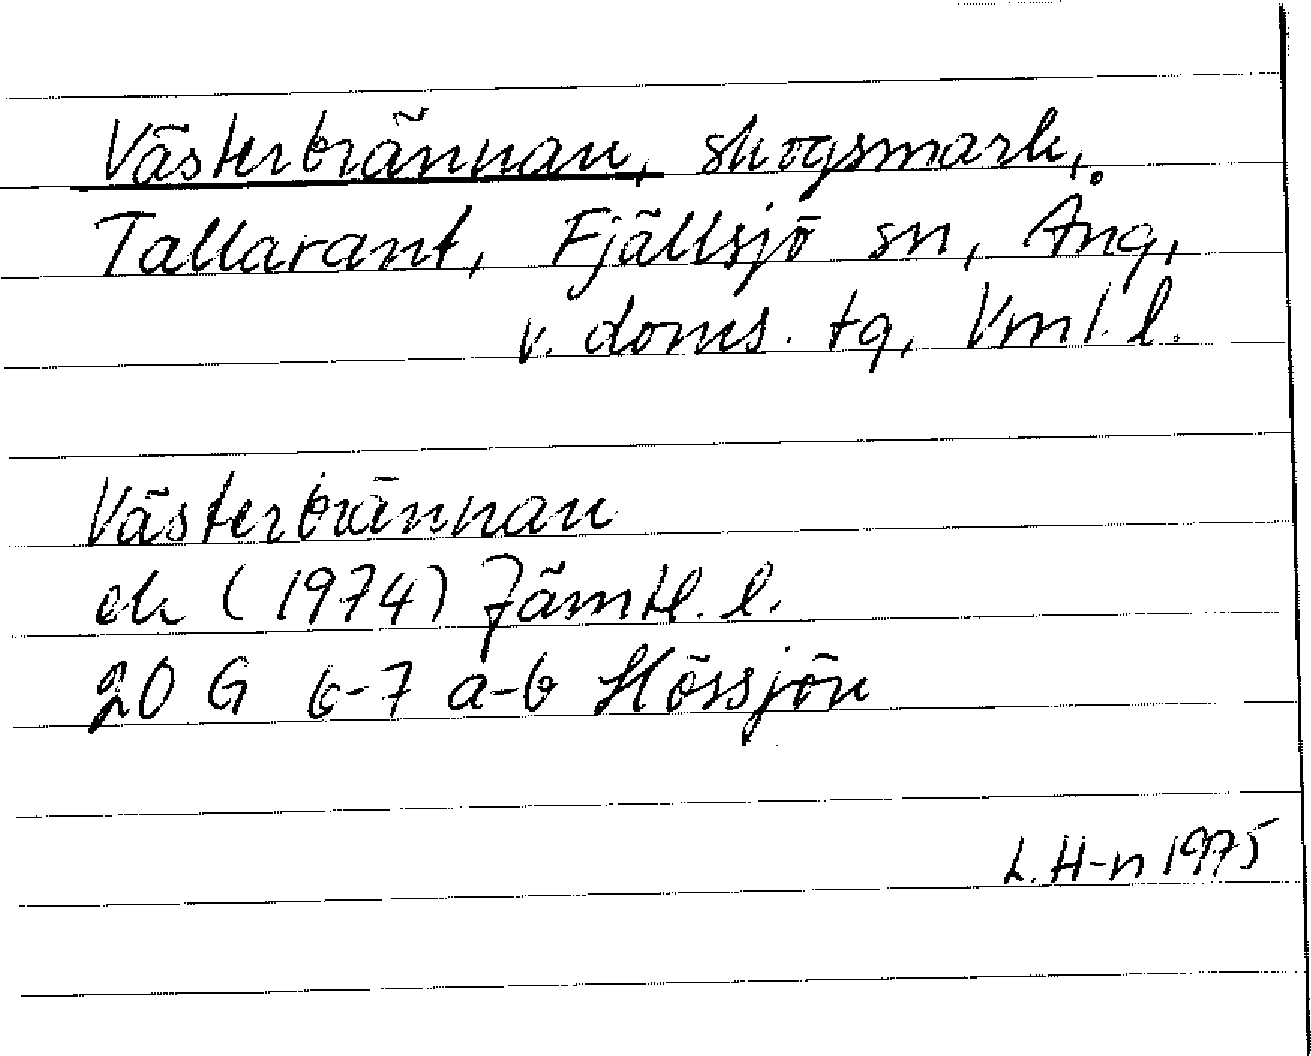 Västerbrännan, skogsmark,
Tallarant, Fjällsjö sn, Ång,
v. doms. tg, Vml. l.
Västerbrännan
ek (1974) Jämtl. l.
20 G 6-7 a-b Hössjön
L. H-n 1975